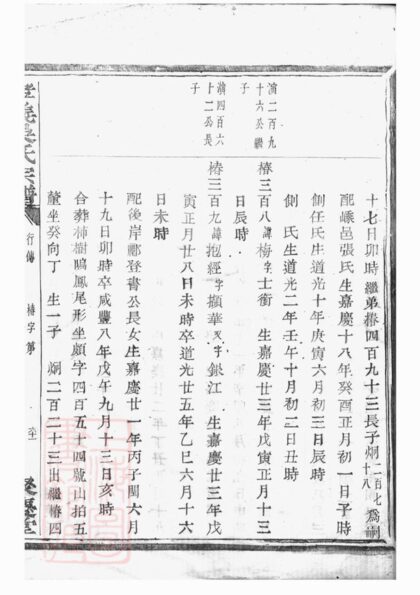 十七日卯時 繼弟椿四百九十三長子炯二百七十八爲嗣
配嵊邑張氏生嘉慶十八年癸酉正月初一日子時
側任氏生道光十年庚寅六月初三日辰時
側 氏生道光二年壬午十月初二日丑時
濱二百九十六公繼子
椿三百八 諱梅字士衡 生嘉慶廿三年戊寅正月十三
日辰時
濱四百六十二公長子
椿三百九 諱抱經字擷華又字銀江 生嘉慶廿三年戊
寅正月廿八日未時卒道光廿五年乙巳六月十六
日未時
配後岸郦登書公長女生嘉慶廿一年丙子閏六月
十九日卯時卒咸豐八年戊午九月十三日亥時
合葬柿樹鳴鳳尾形坐顧字四百五十四號山拍五
釐坐癸向丁 生一子 炯二百二十三出繼椿四
氏宗譜
行傳 椿字第